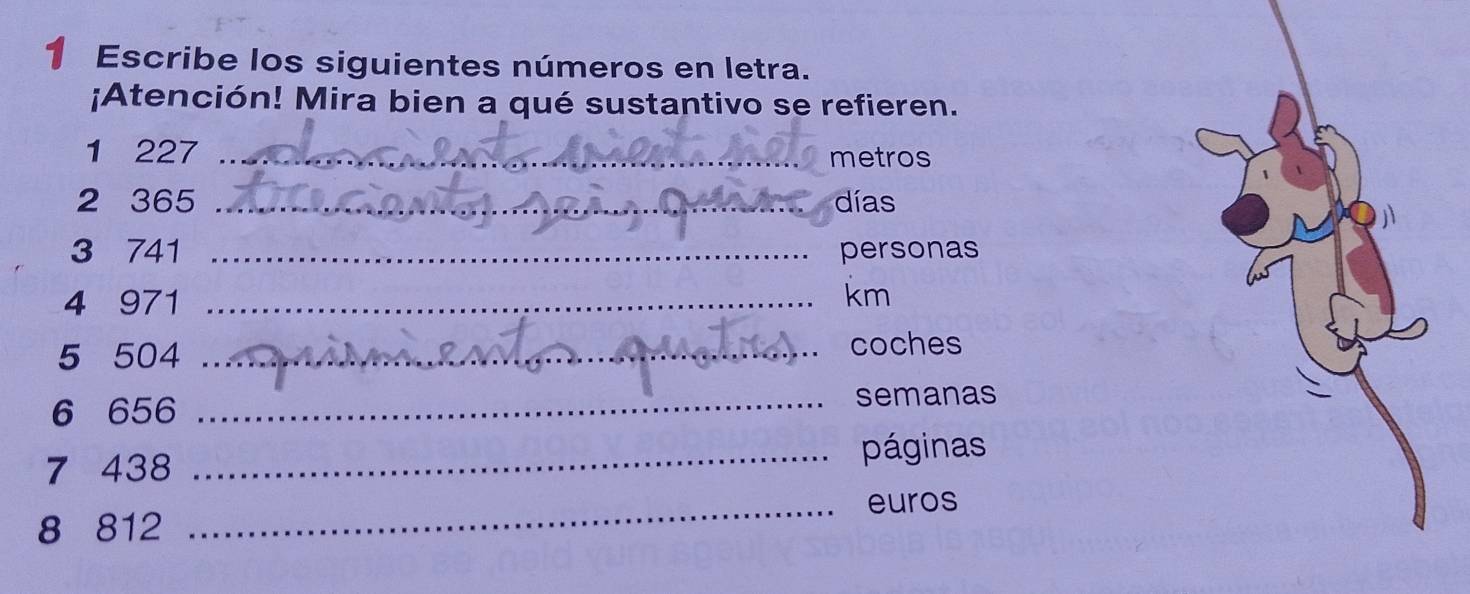 1 Escribe los siguientes números en letra.
¡Atención! Mira bien a qué sustantivo se refieren.
1 227 metros
2 365 trecientos seis quinc días
3 741 personas
4 971 km
5 504 quinientos quatros coches
6 656 semanas
7 438 páginas
8 812 euros